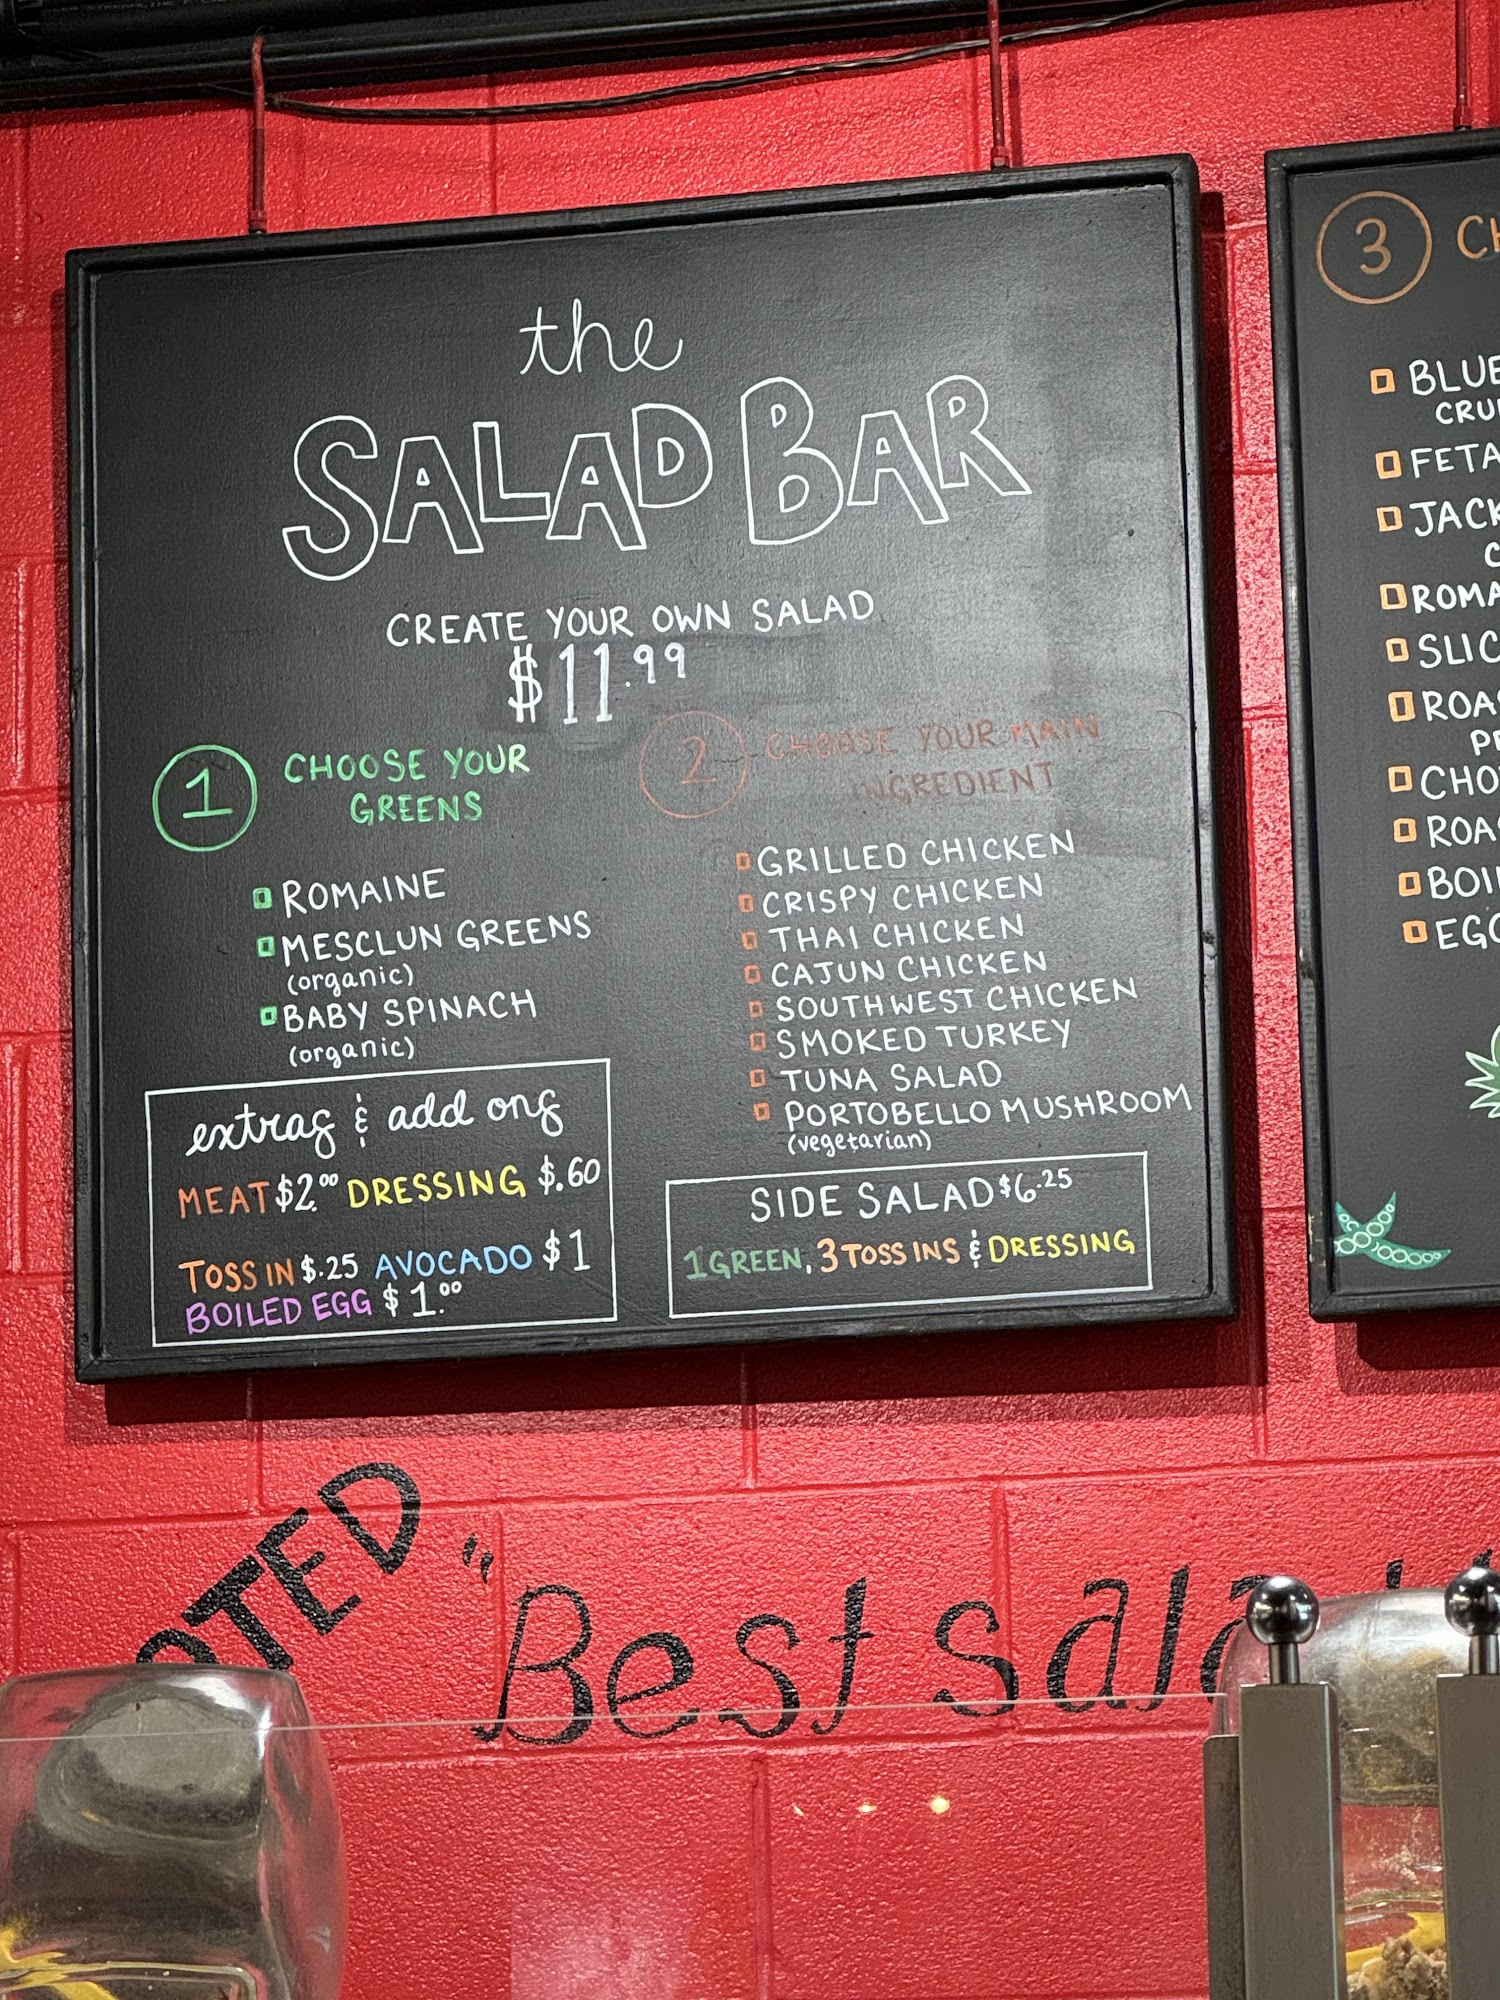 the
SALAD BAR
CREATE YOUR OWN SALAD
$11.99
1 CHOOSE YOUR
GREENS
ROMAINE
MESCLUN GREENS
(organic)
BABY SPINACH
(organic)
2 CHOOSE YOUR MAIN
INGREDIENT
GRILLED CHICKEN
CRISPY CHICKEN
THAI CHICKEN
CAJUN CHICKEN
SOUTHWEST CHICKEN
SMOKED TURKEY
TUNA SALAD
PORTOBELLO MUSHROOM
(vegetarian)
extras & add ons
MEAT $2.00 DRESSING $.60
TOSS IN $.25 AVOCADO $1
BOILED EGG $1.00
SIDE SALAD $6.25
1 GREEN, 3 TOSS INS & DRESSING
3
BLUE
FETA
"Best